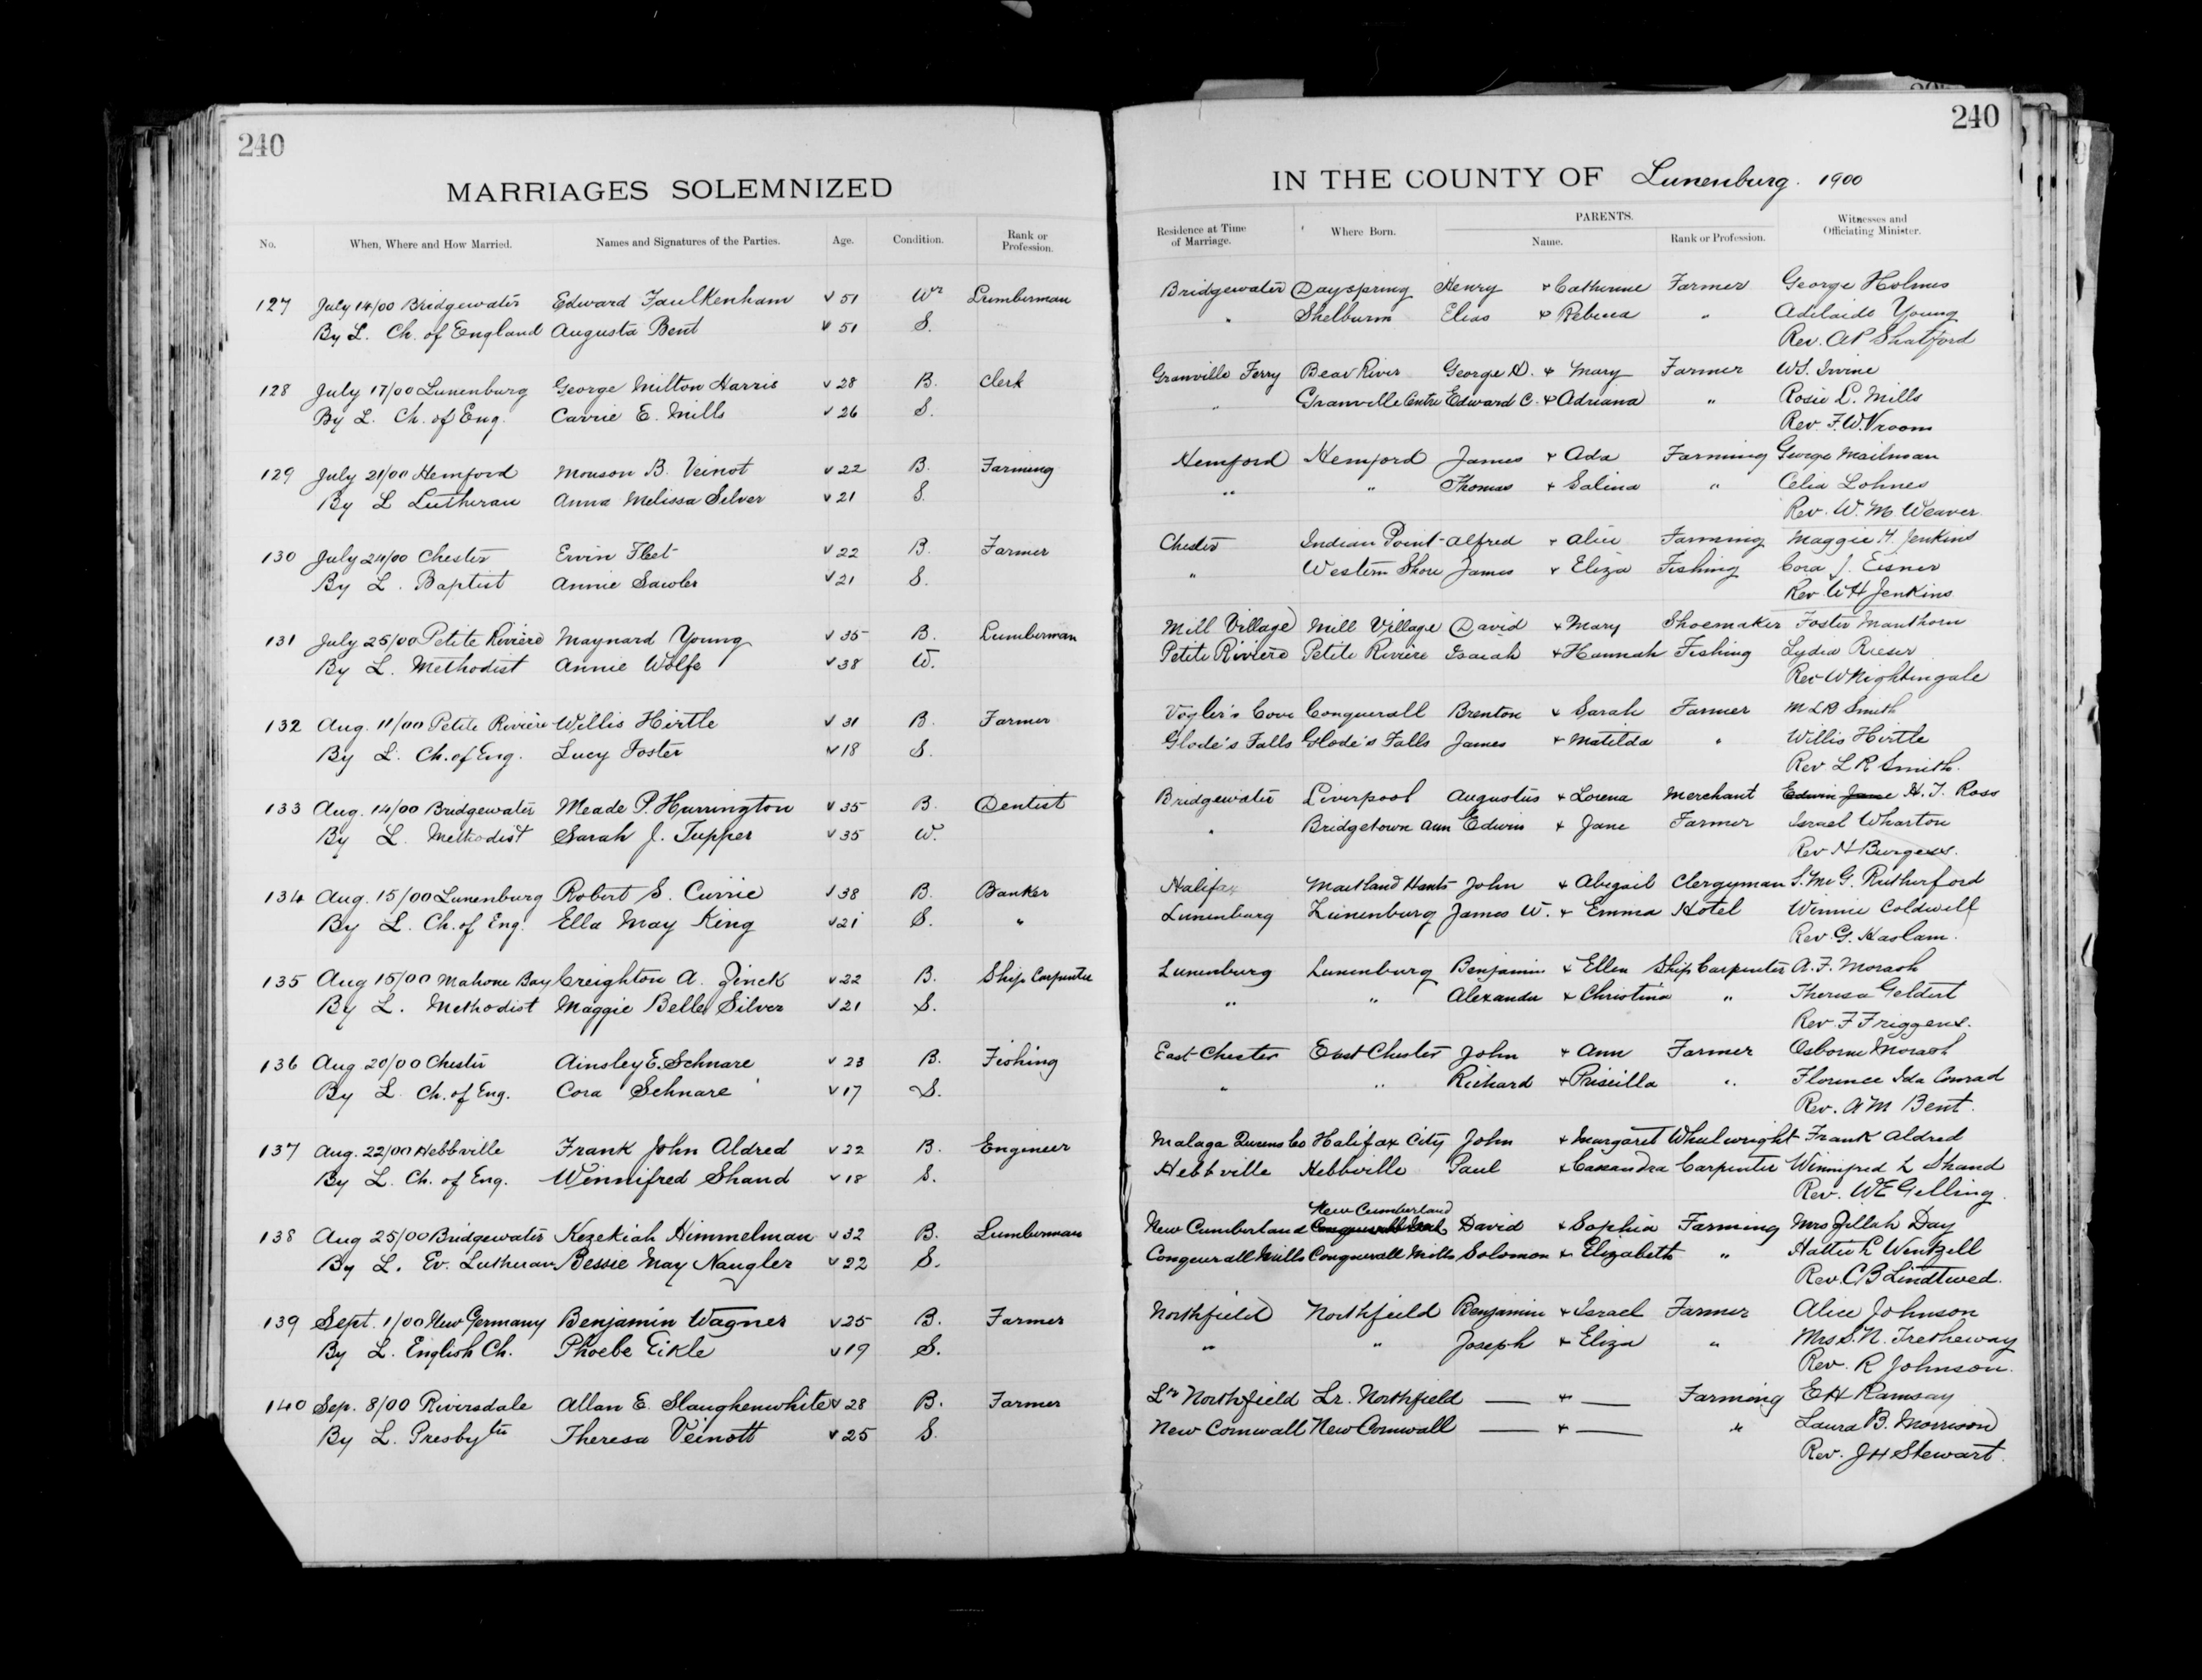 240
MARRIAGES SOLEMNIZED
No. When, Where and How Married. Names and Signatures of the Parties. Age. Condition. Rank or Profession.
127 July 14/00 Bridgewater Edward Faulkenham 51 Wr Lumberman
By L. Ch. of England Augusta Bent 51 S.
128 July 17/00 Lunenburg George Milton Harris 28 B. Clerk
By L. Ch. of Eng. Carrie E. Mills 26 S.
129 July 21/00 Hemford Monson B. Veinot 22 B. Farming
By L Lutheran Anna Melissa Silver 21 S.
130 July 24/00 Chester Ervin 22 B. Farmer
By L. Baptist Annie Sawler 21 S.
131 July 25/00 Petite Riviere Maynard Young 35 B. Lumberman
By L. Methodist Annie Wolfe 38 W.
132 Aug. 11/00 Petite Riviere Willis Hirtle 31 B. Farmer
By L. Ch. of Eng. Lucy Foster 18 S.
133 Aug. 14/00 Bridgewater Meade P. Harrington 35 B. Dentist
By L. Methodist Sarah J. Tupper 35 W.
134 Aug. 15/00 Lunenburg Robert S. Currie 38 B. Banker
By L. Ch. of Eng. Ella May King 21 S. "
135 Aug 15/00 Mahone Bay Creighton A. Zinck 22 B. Ship Carpenter
By L. Methodist Maggie Belle Silver 21 S.
136 Aug 20/00 Chester Ainsley E. Schnare 23 B. Fishing
By L Ch. of Eng. Cora Schnare 17 S.
137 Aug. 22/00 Hebbville Frank John Aldred 22 B. Engineer
By L. Ch. of Eng. Winnifred Shand 18 S.
138 Aug 25/00 Bridgewater Hezekiah Himmelman 32 B. Lumberman
By L. Ev. Lutheran Bessie May Naugler 22 S.
139 Sept. 1/00 New Germany Benjamin Wagner 25 B. Farmer
By L. English Ch. Phoebe Eikle 19 S.
140 Sep. 8/00 Riversdale Allan E. Slaughenwhite 28 B. Farmer
By L. Presbyter Theresa Veinott 25 S.
240
IN THE COUNTY OF Lunenburg. 1900
Residence at Time of Marriage. Where Born. PARENTS. Name. Rank or Profession. Witnesses and Officiating Minister.
Bridgewater Dayspring Henry & Catherine Farmer George Holmes
" Shelburn Elias & Rebecca " Adelaide Young
Rev. A P Shatford
Granville Ferry Bear River George D. & Mary Farmer W.S. Irvine
" Granville Centre Edward C. & Adriana " Rosie L. Mills
Rev. F.W. Vroom
Hemford Hemford James & Ada Farming George Mailman
" " Thomas & Salina " Celia Lohnes
Rev. W. M. Weaver.
Chester Indian Point Alfred & Alice Farming Maggie H. Jenkins
" Western Shore James & Eliza Fishing Cora J. Eisnor
Rev W H Jenkins
Mill Village Mill Village David & Mary Shoemaker Foster Manthorn
Petite Riviere Petite Riviere Isaiah & Hannah Fishing Lydia
Rev W Nightingale
Vogler's Cove Conquerall Brenton & Sarah Farmer M L B Smith
Glode's Falls Glode's Falls James & Matilda " Willis Hirtle
Rev L R Smith.
Bridgewater Liverpool Augustus & Lorena Merchant Edwin Jane H. T. Ross
" Bridgetown Ann Edwin & Jane Farmer Israel Wharton
Rev H Burgess.
Halifax Maitland Hants John & Abigail Clergyman S. McG. Rutherford
Lunenburg Lunenburg James W. & Emma Hotel Winnie Coldwell
Rev. G. Haslam.
Lunenburg Lunenburg Benjamin & Ellen Ship Carpenter A. F. Morash
" " Alexander & Christina " Theresa Geldert
Rev. F Friggens.
East Chester East Chester John & Ann Farmer Osborne Morash
" " Richard & Priscilla " Florence Ida Conrad
Rev. A M Bent.
Malaga Queens Co Halifax City John & Margaret Wheelwright Frank Aldred
Hebbville Hebbville Paul & Cassandra Carpenter Winnifred L Shand
Rev. W E Gelling.
New Cumberland
New Cumberland David & Sophia Farming Mrs Zillah Day
Conquerall Mills Conquerall Mills Solomon & Elizabeth " Hattie L Wentzell
Rev. C B Lindtwed.
Northfield Northfield Benjamin & Israel Farmer Alice Johnson
" " Joseph & Eliza " Mrs S. N. Tretheway
Rev. R Johnson.
Lr Northfield Lr. Northfield — & — Farming E H Ramsay
New Cornwall New Cornwall — & — " Laura B. Morrison
Rev. J H Stewart.